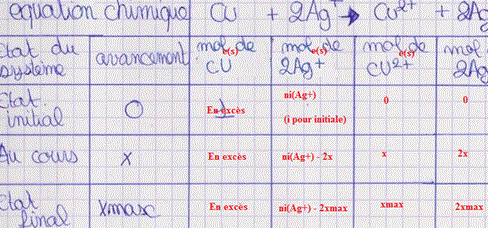 equation chimique Cu + 2Ag+ → Cu2+ + 2Ag
Etat du système avancement mole(s) de CU mole(s) de 2Ag+ mole(s) de CU2+ mol de 2Ag
Etat initial 0 En excès ni(Ag+) (i pour initiale) 0 0
Au cours x En excès ni(Ag+) - 2x x 2x
Etat final xmax En excès ni(Ag+) - 2xmax xmax 2xmax